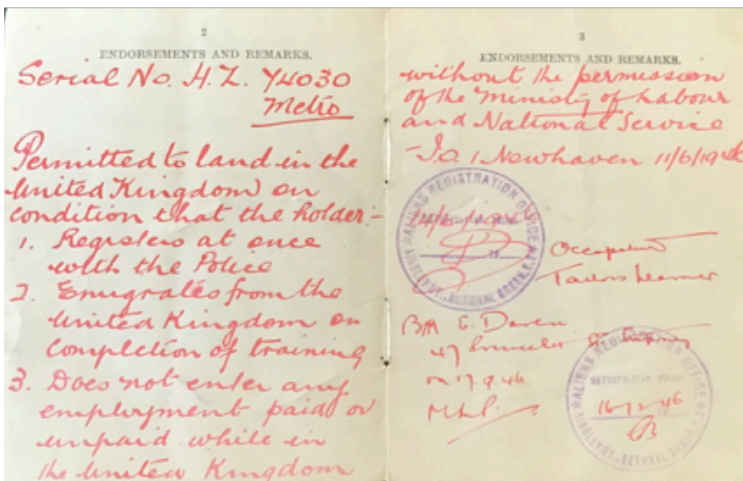 2
ENDORSEMENTS AND REMARKS.
Serial No. A.Z. 74030
Metro
Permitted to land in the
United Kingdom on
condition that the holder:-
1. Registers at once
with the Police
2. Emigrates from the
United Kingdom on
completion of training
3. Does not enter any
employment paid or
unpaid while in
the United Kingdom
3
ENDORSEMENTS AND REMARKS.
without the permission
of the Ministry of Labour
and National Service
I.O. 1 Newhaven 11/6/19
ALIENS REGISTRATION OFFICE
Occupation
Tailors Learner
BM E. Daven
47
on 17.9.46
ALIENS REGISTRATION OFFICE
METROPOLITAN POLICE
16 12 46
BETHNAL GREEN